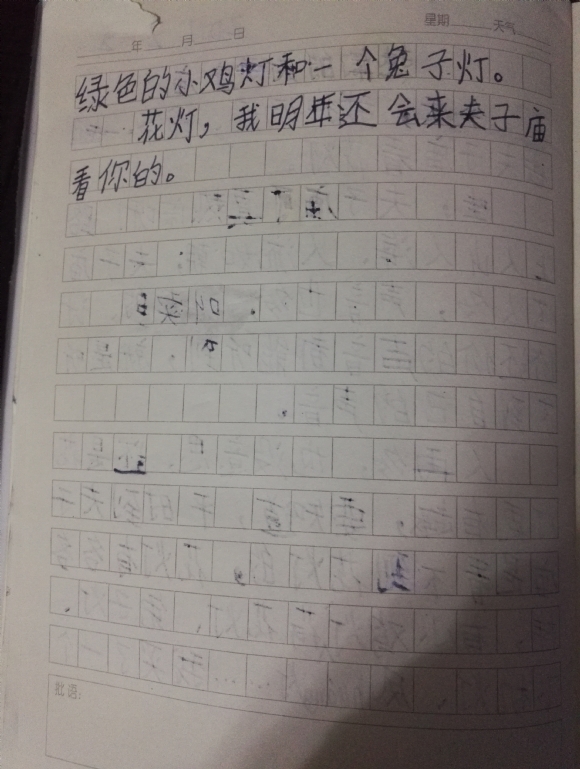 年 月 日 星期 天气
绿色的小鸡灯和一个兔子灯。
花灯，我明年还会来夫子庙
看你的。
批语：